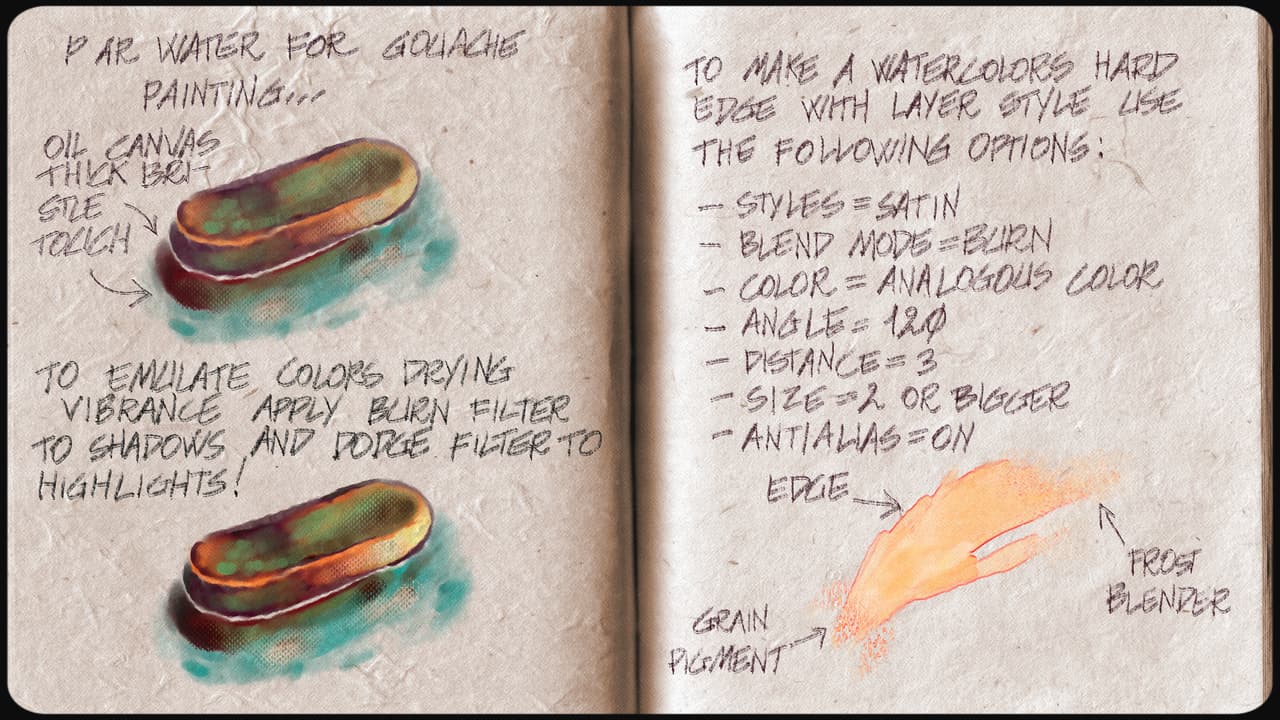 P AR WATER FOR GOUACHE
PAINTING...
OIL CANVAS
THICK BRI-
STLE
TOUCH
TO EMULATE COLORS DRYING
VIBRANCE APPLY BURN FILTER
TO SHADOWS AND DODGE FILTER TO
HIGHLIGHTS!
TO MAKE A WATERCOLORS HARD
EDGE WITH LAYER STYLE USE
THE FOLLOWING OPTIONS:
- STYLES = SATIN
- BLEND MODE = BURN
- COLOR = ANALOGOUS COLOR
- ANGLE = 120
- DISTANCE = 3
- SIZE = 2 OR BIGGER
- ANTIALIAS = ON
EDGE
FROST
BLENDER
GRAIN
PIGMENT